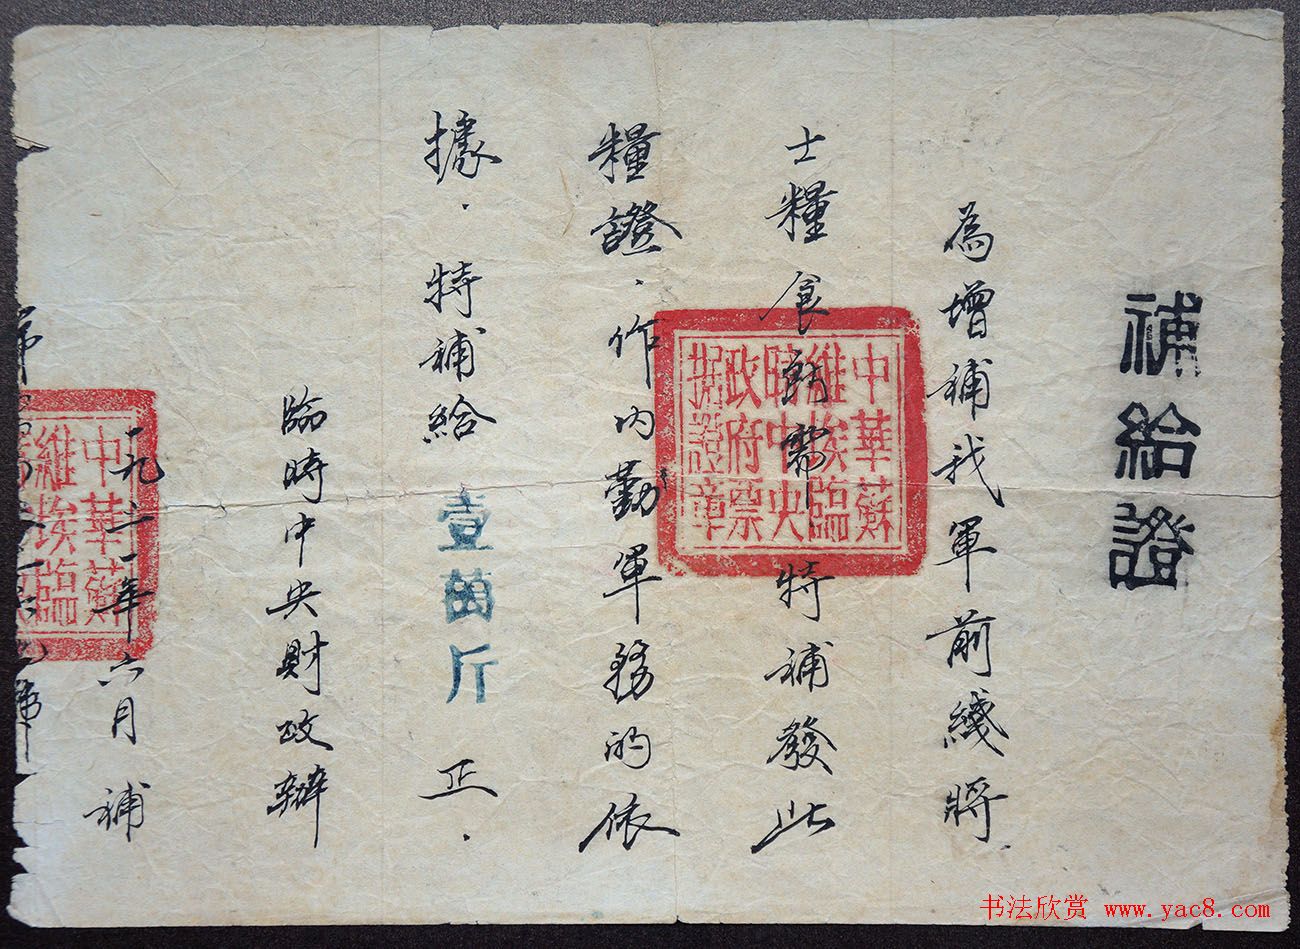 補給證
為增補我軍前綫將
士糧食所需特補發此
糧證.作內勤軍務的依
據.特補給壹萬斤正.
臨時中央財政辦
一九三一年六月補
中華蘇
維埃臨
時中央
政府票
據證章
中華蘇
維埃臨
书法欣赏 www.yac8.com